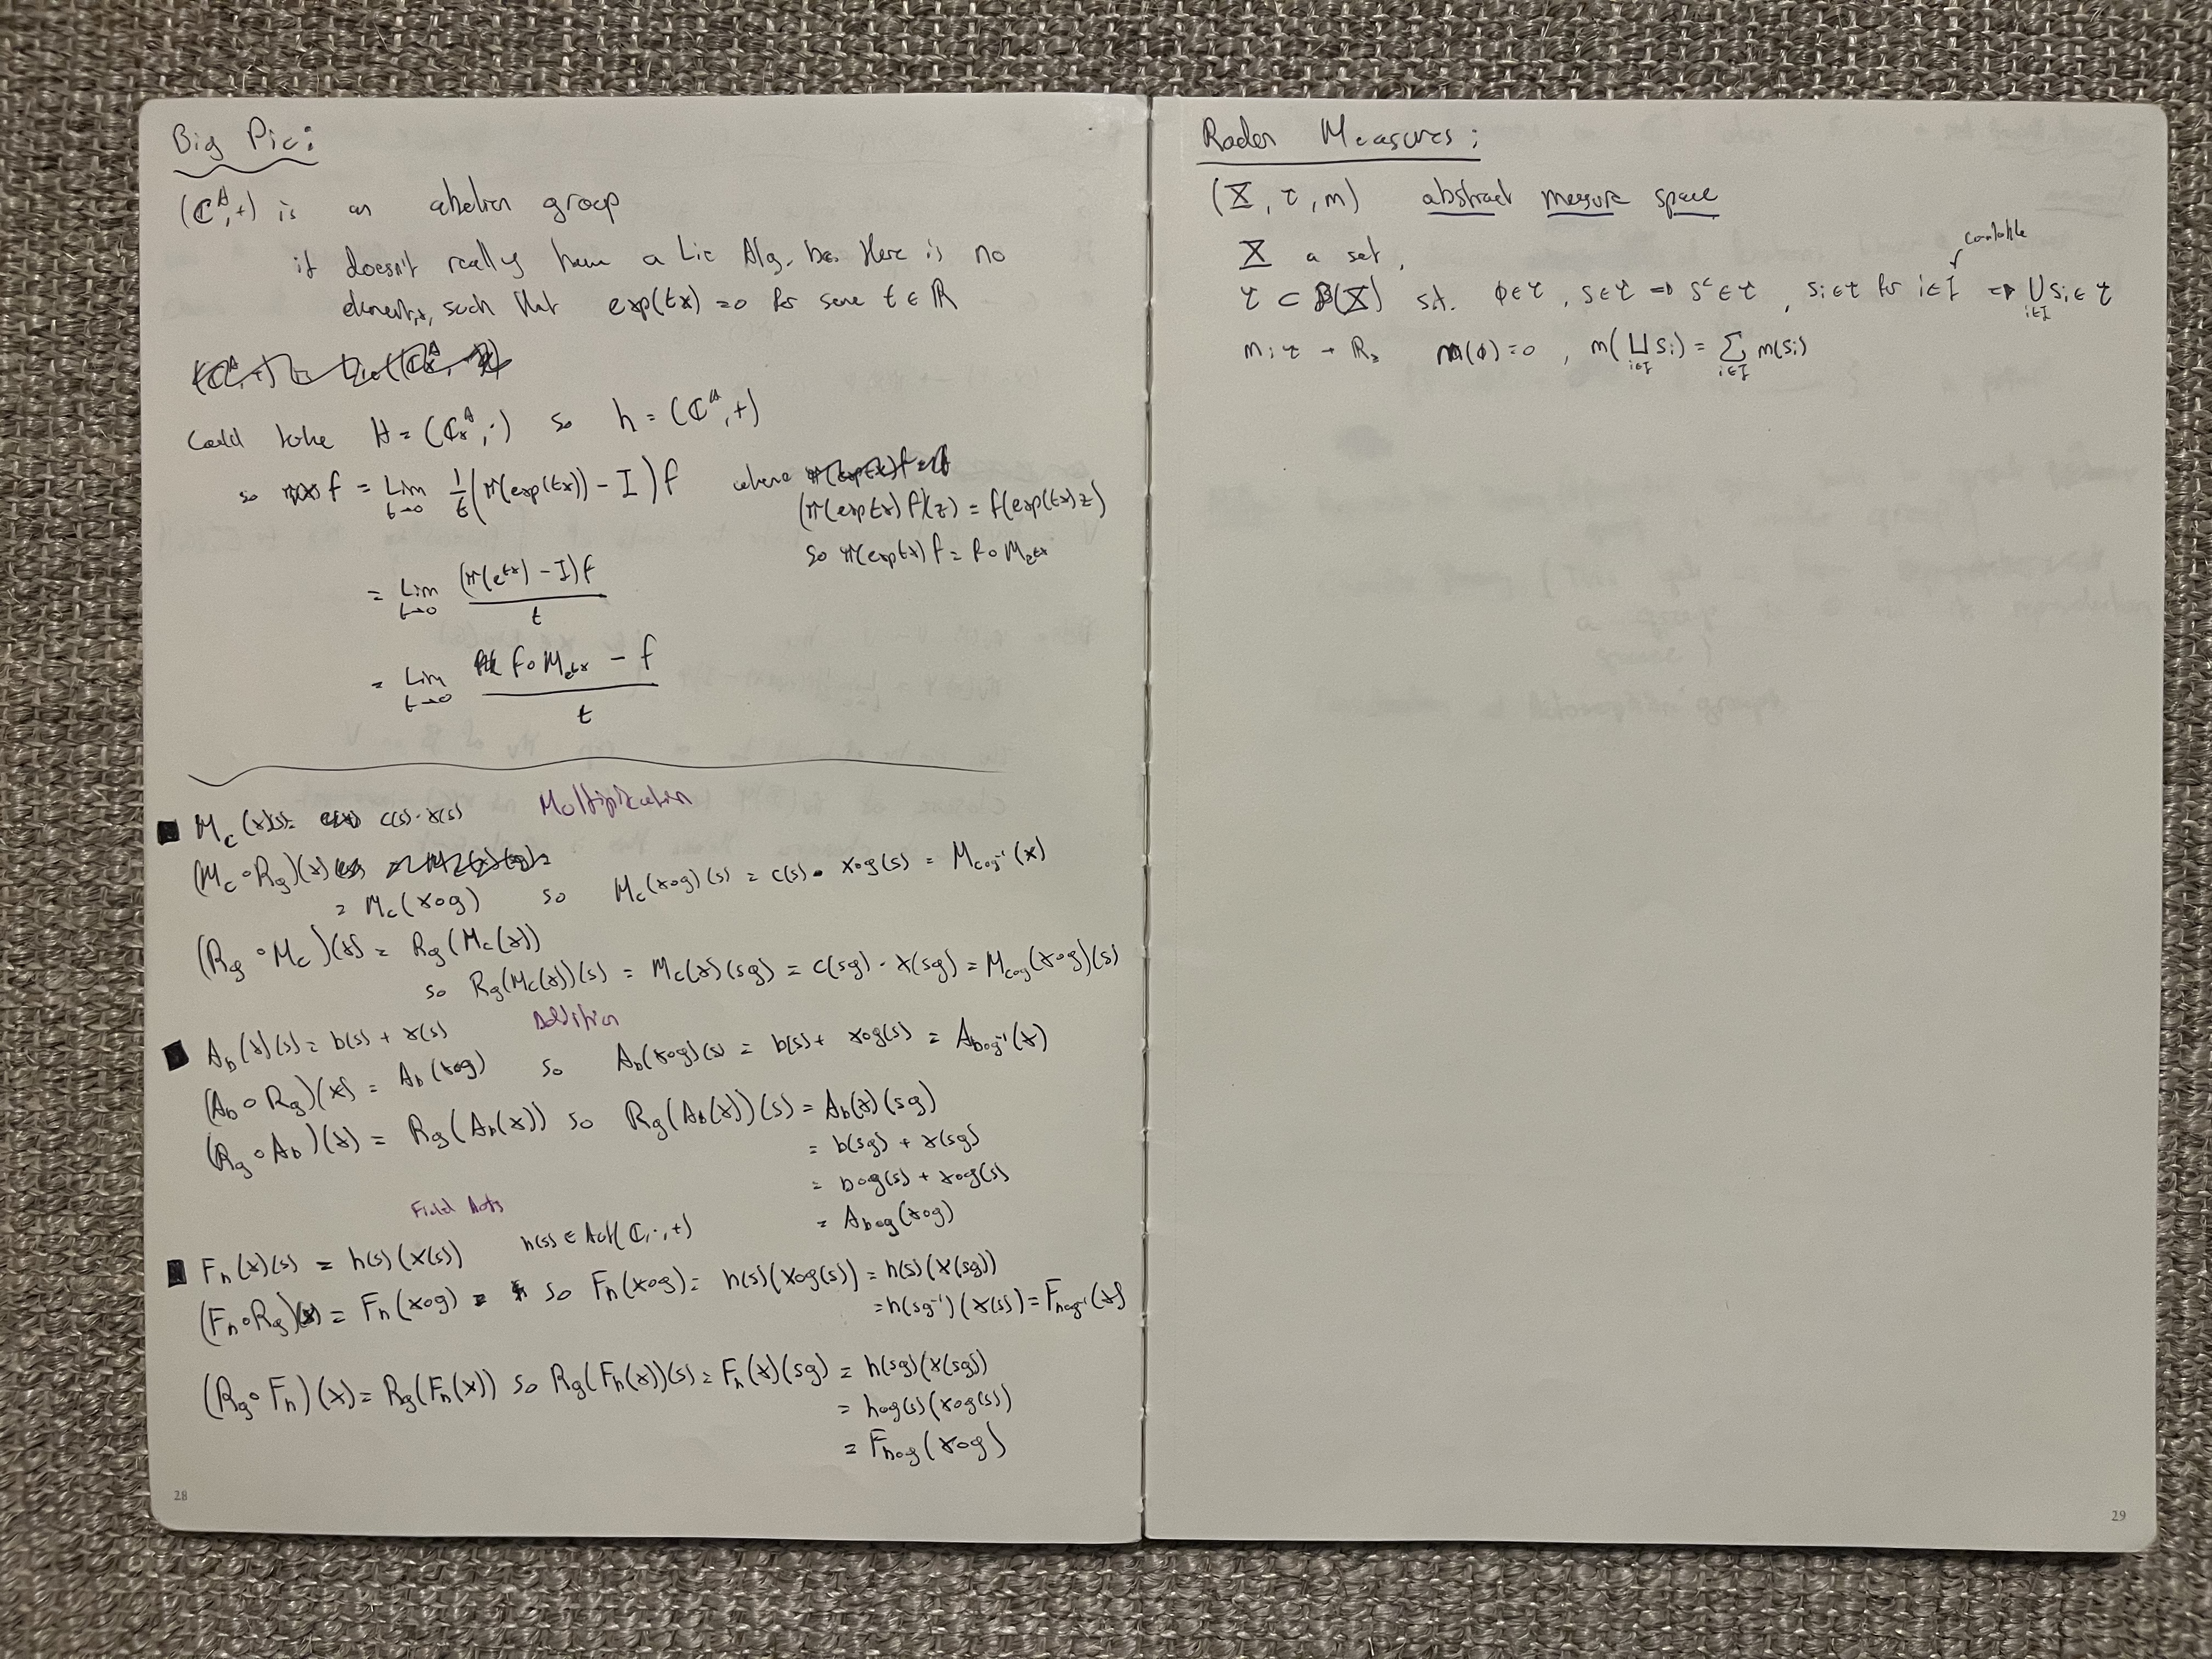 Big Pic:
(ℂᴬ, +) is an abelian group
it doesn't really have a Lie Alg. bec there is no
such that exp(tx) = 0 for some t ∈ ℝ
could take H = (ℂₓᴬ, ·) so h = (ℂᴬ, +)
so f = Lim t→0 1/t (π(exp(tx)) - I) f where
(π(exp tx) f)(z) = f(exp(tx) z)
= Lim t→0 (π(eᵗˣ) - I) f / t
so π(exp tx) f = f∘M_eᵗˣ
= Lim t→0 f∘M_eᵗˣ - f / t
Multiplication
■ M_c(x)(s) = c(s)·x(s)
(M_c∘R_g)(x)
= M_c(x∘g) so M_c(x∘g)(s) = c(s) · x∘g(s) = M_c∘g⁻¹(x)
(R_g∘M_c)(x) = R_g(M_c(x))
so R_g(M_c(x))(s) = M_c(x)(sg) = c(sg)·x(sg) = M_c∘g(x∘g)(s)
Addition
■ A_b(x)(s) = b(s) + x(s)
(A_b∘R_g)(x) = A_b(x∘g) so A_b(x∘g)(s) = b(s) + x∘g(s) = A_b∘g⁻¹(x)
(R_g∘A_b)(x) = R_g(A_b(x)) so R_g(A_b(x))(s) = A_b(x)(sg)
= b(sg) + x(sg)
= b∘g(s) + x∘g(s)
= A_b∘g(x∘g)
Field Auts
h(s) ∈ Aut(ℂ, ·, +)
■ F_h(x)(s) = h(s)(x(s))
(F_h∘R_g)(x) = F_h(x∘g) = so F_h(x∘g) = h(s)(x∘g(s)) = h(s)(x(sg))
= h(sg⁻¹)(x(s)) = F_h∘g⁻¹(x)
(R_g∘F_h)(x) = R_g(F_h(x)) so R_g(F_h(x))(s) = F_h(x)(sg) = h(sg)(x(sg))
= h∘g(s)(x∘g(s))
= F_h∘g(x∘g)
28
Radon Measures:
(X, τ, m) abstract measure space
X a set,
countable
τ ⊂ P(X) s.t. ∅∈τ, S∈τ ⇒ Sᶜ∈τ, Si∈τ for i∈I ⇒ ⋃ i∈I Si∈τ
m: τ → ℝ≥ m(∅) = 0, m(∐ i∈I Si) = ∑ i∈I m(Si)
29